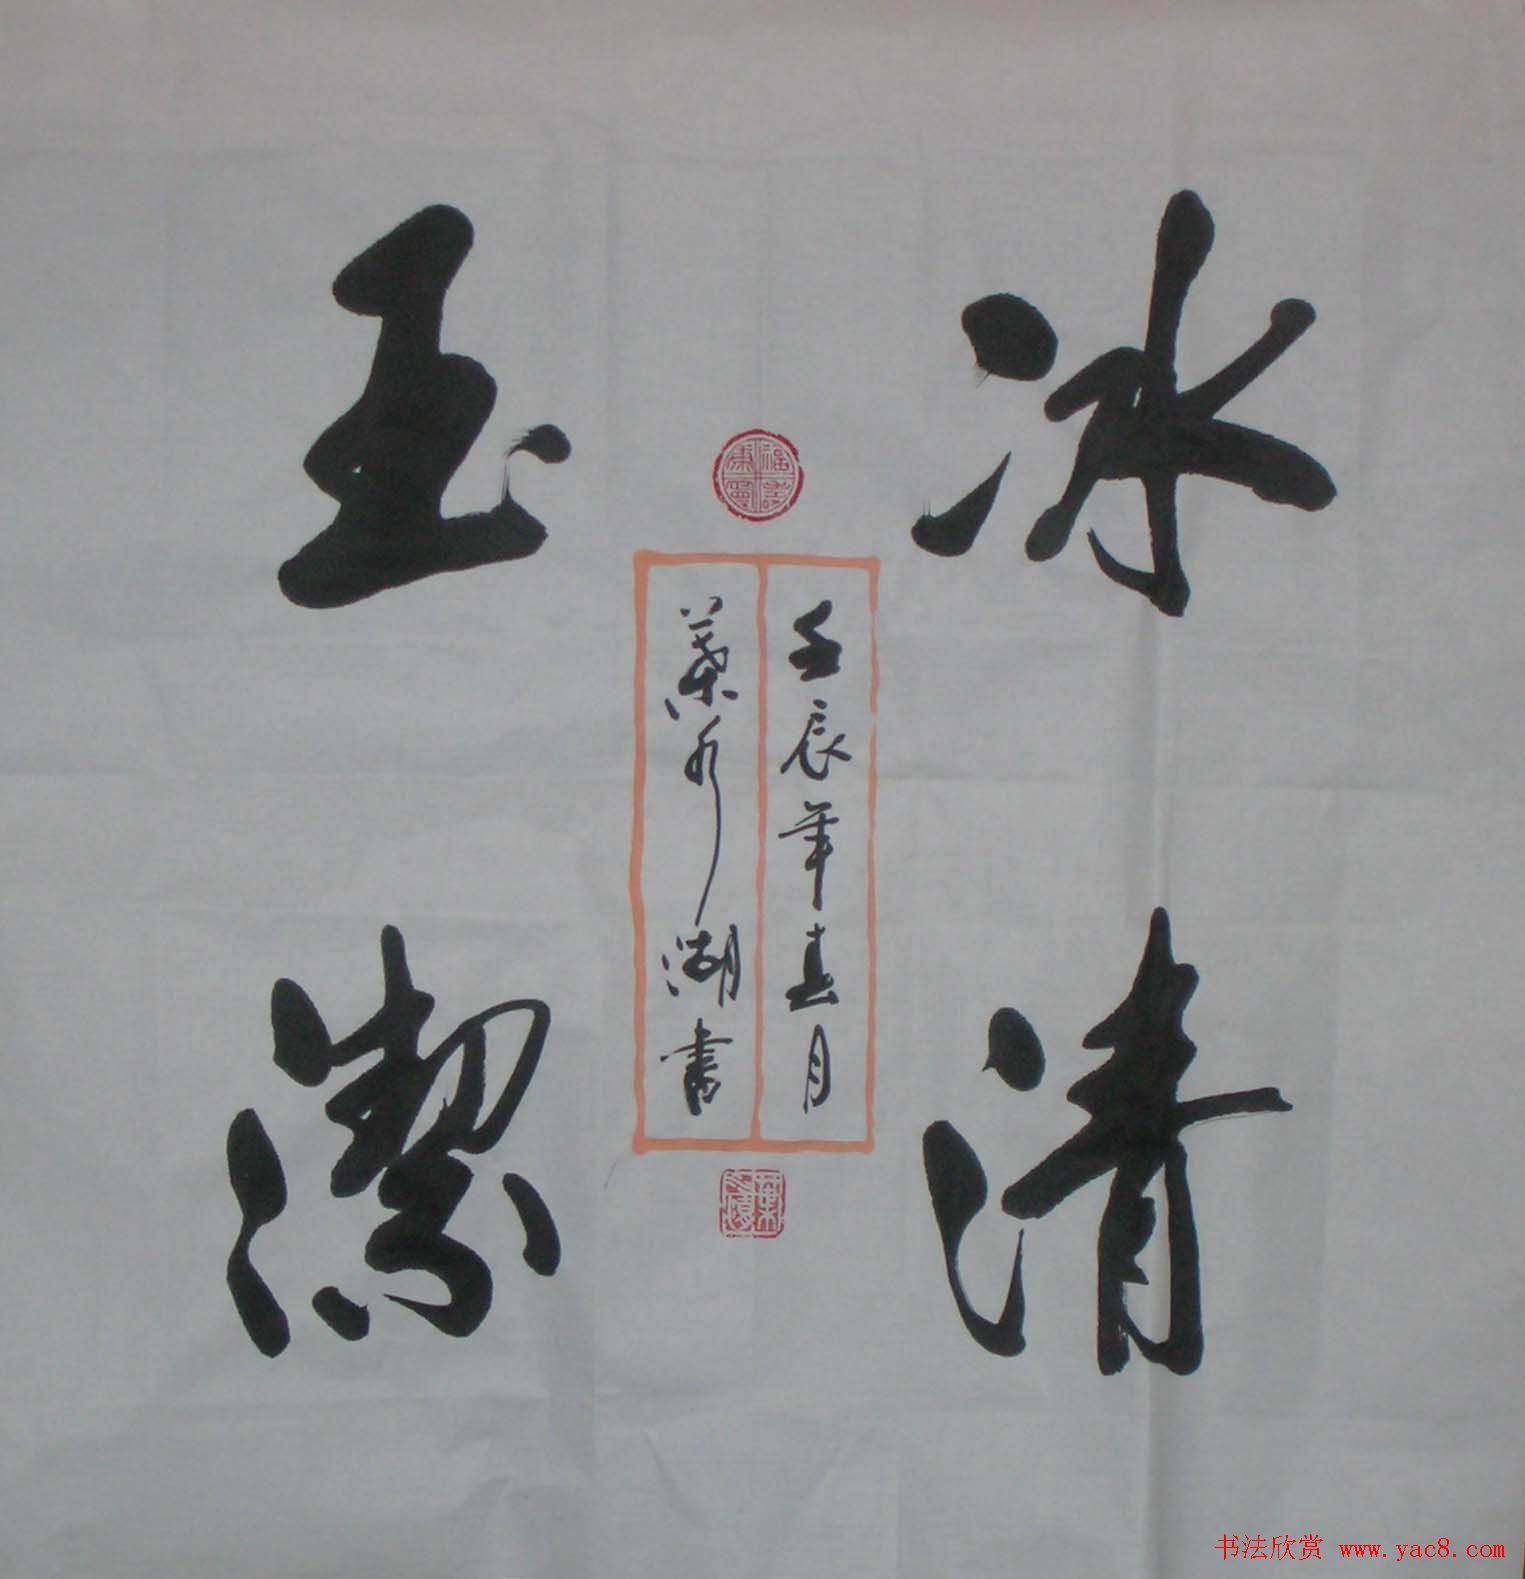 冰清
玉潔
福壽康寧
壬辰年春月
葉水湖書
书法欣赏 www.yac8.com